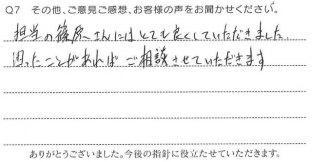 Q7 その他、ご意見ご感想、お客様の声をお聞かせください。
担当の篠原さんにはとても良くしていただきました.
困ったことがあればご相談させていただきます
ありがとうございました。今後の指針に役立たせていただきます。